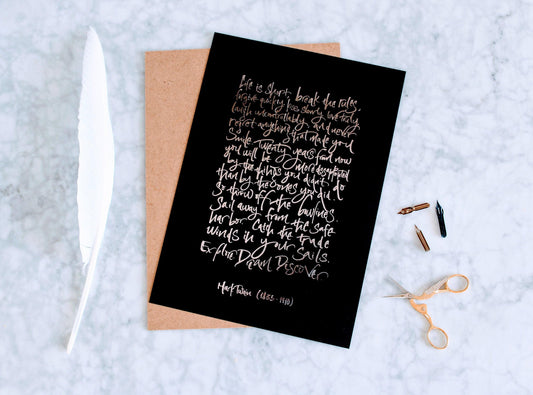 Life is short, break the rules,
forgive quickly, kiss slowly, love truly
laugh uncontrollably and never
regret anything that made you
Smile. Twenty years from now
you will be more disappointed
by the things you didn't do
than by the ones you did.
So throw off the bowlines.
Sail away from the safe
harbor. Catch the trade
winds in your sails.
Explore Dream Discover
Mark Twain (1835-1910)